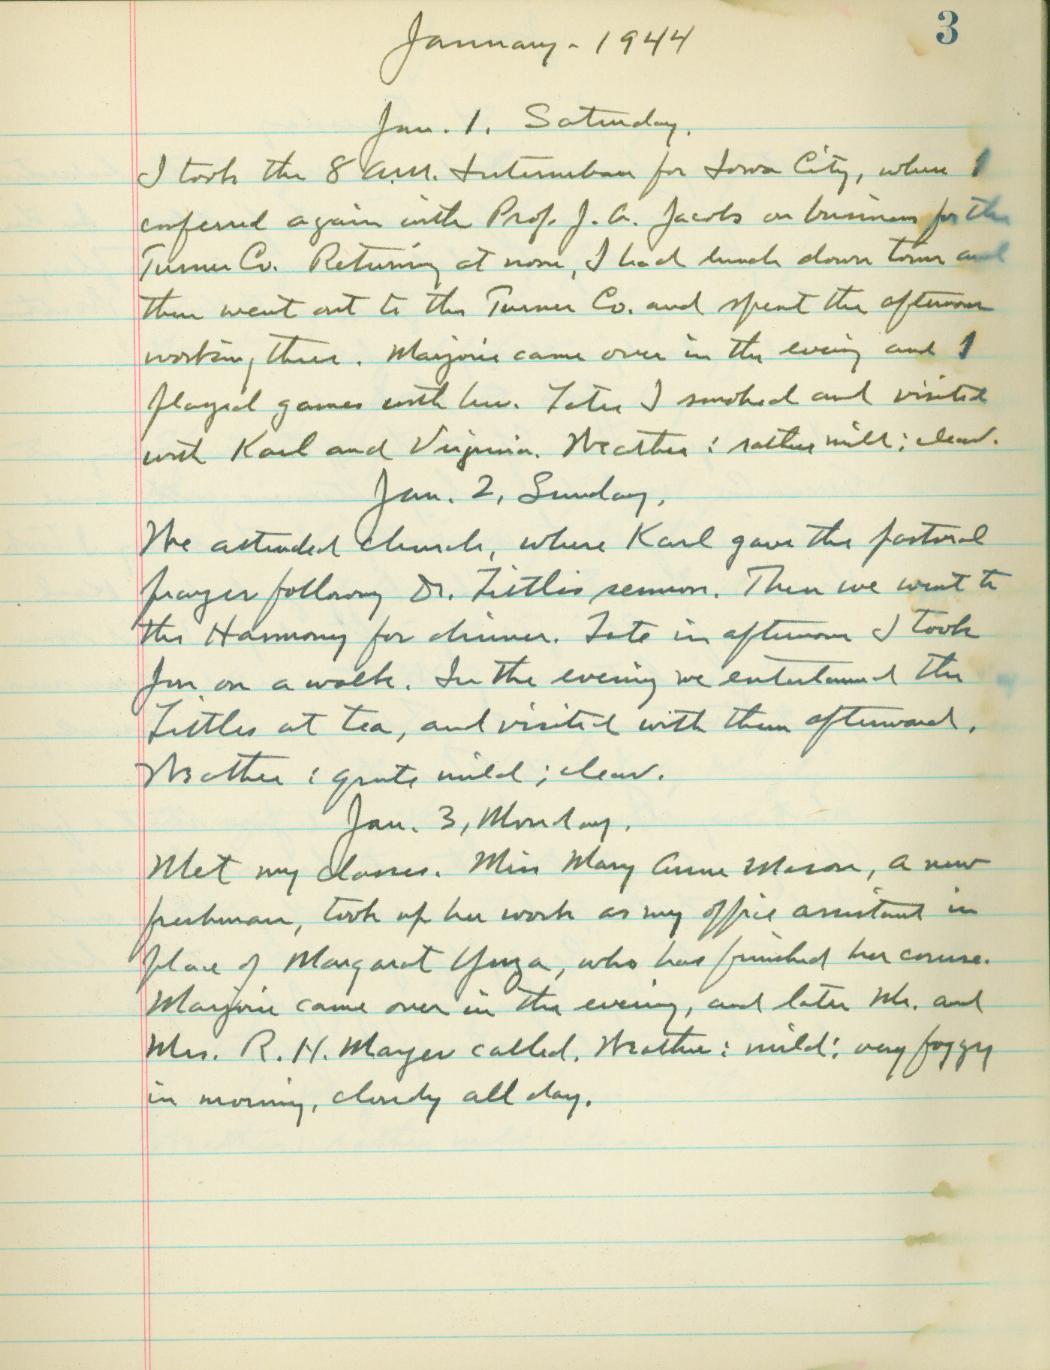 3
January - 1944
Jan. 1. Saturday.
I took the 8 a.m. Interurban for Iowa City, where I
conferred again with Prof. J. A. Jacobs on business for the
Turner Co. Returning at noon, I had lunch down town and
then went out to the Turner Co. and spent the afternoon
working there. Marjorie came over in the evening and I
played games with her. Later I smoked and visited
with Karl and Virginia. Weather: rather mild; clear.
Jan. 2, Sunday.
We attended church, where Karl gave the pastoral
prayer following Dr. Tittle's sermon. Then we went to
the Harmony for dinner. Late in afternoon I took
Jon on a walk. In the evening we entertained the
Tittles at tea, and visited with them afterward.
Weather: quite mild; clear.
Jan. 3, Monday.
Met my classes. Miss Mary Anne Mason, a new
freshman, took up her work as my office assistant in
place of Margaret, who has finished her course.
Marjorie came over in the evening, and later Mr. and
Mrs. R. H. Mayer called. Weather: mild; very foggy
in morning, cloudy all day.